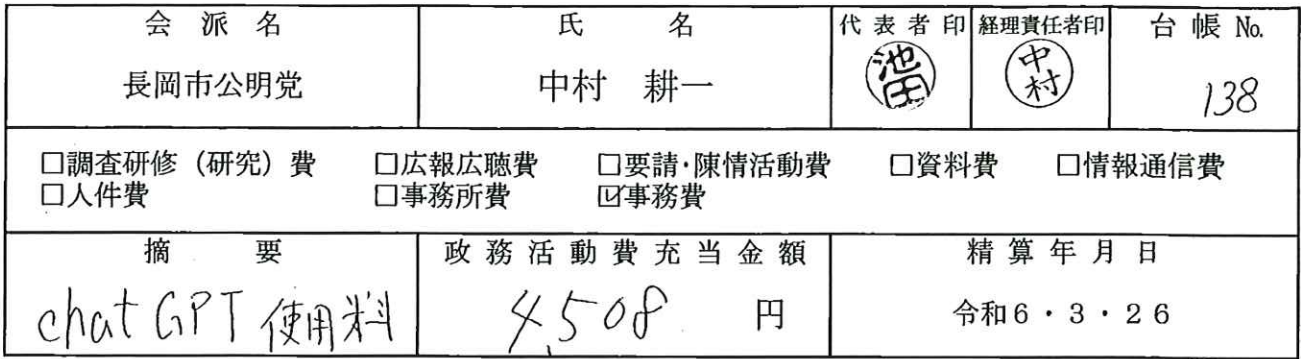 会派名 氏名 代表者印 経理責任者印 台帳No.
長岡市公明党 中村 耕一 池田 中村 138
□調査研修(研究)費 □広報広聴費 □要請・陳情活動費 □資料費 □情報通信費
□人件費 □事務所費 ☑事務費
摘要 政務活動費充当金額 精算年月日
chatGPT使用料 4,508 円 令和6・3・26